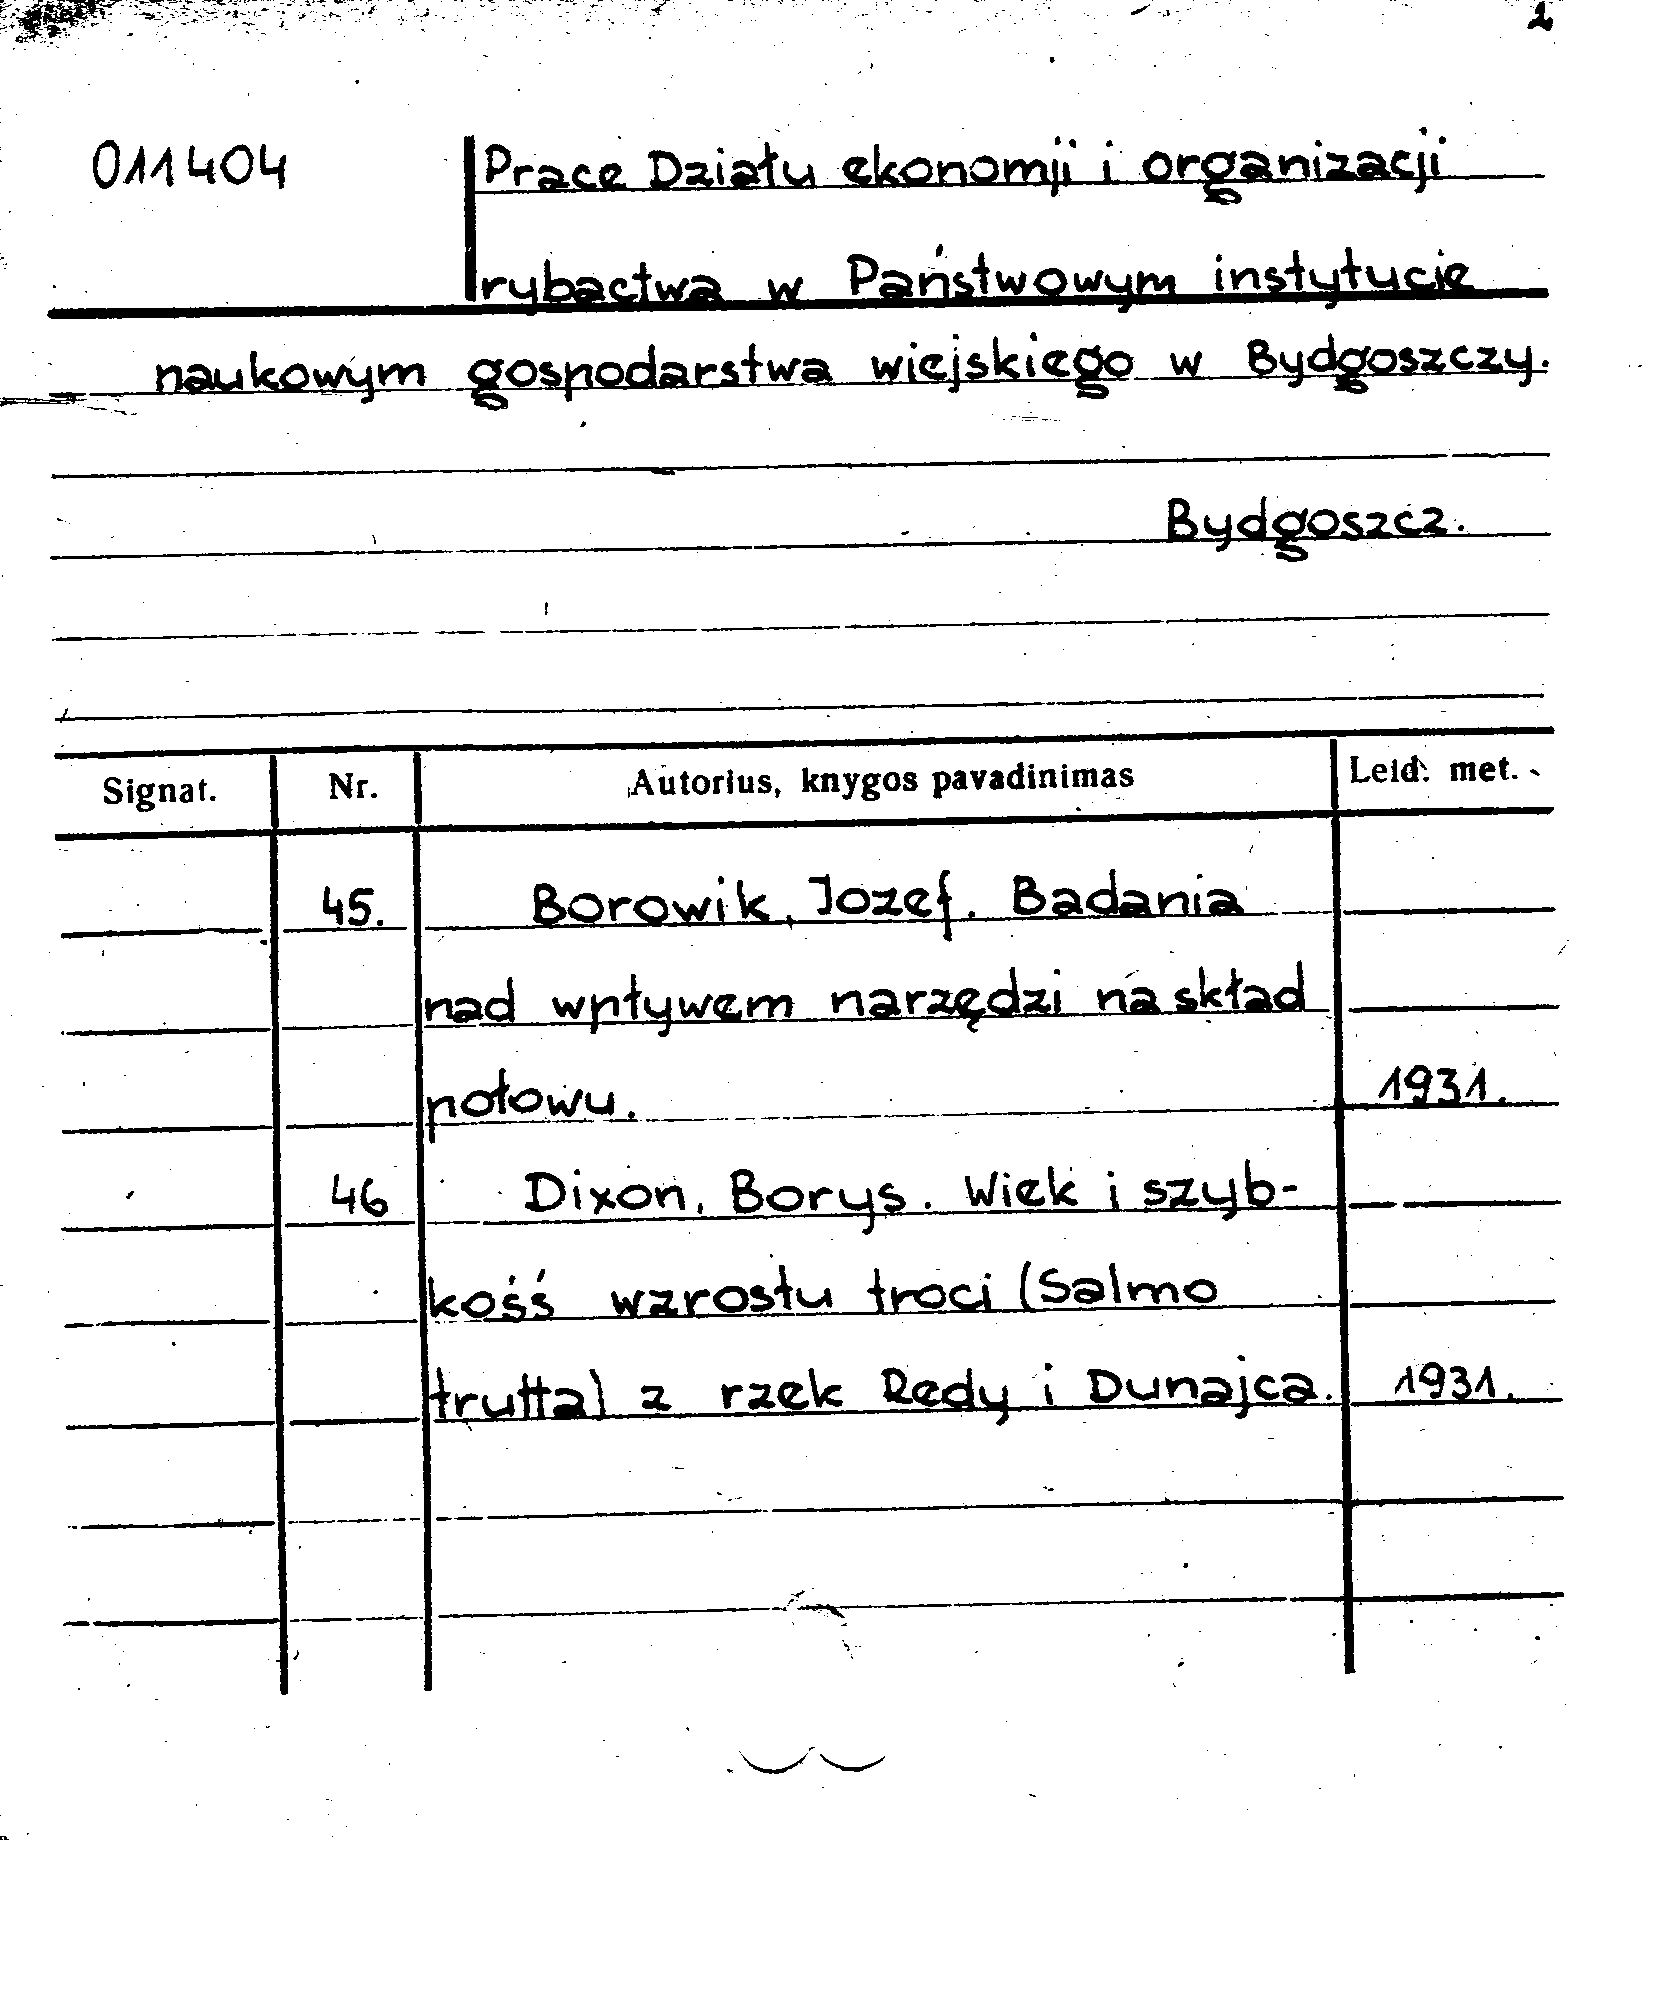 2
011404 Prace Działu ekonomji i organizacji
rybactwa w Państwowym instytucie
naukowym gospodarstwa wiejskiego w Bydgoszczy.
Bydgoszcz.
Signat. Nr. Autorius, knygos pavadinimas Leid. met.
45. Borowik, Jozef. Badania
nad wpływem narzędzi na skład
połowu. 1931.
46 Dixon, Borys. Wiek i szyb-
kośś wzrostu troci (Salmo
trutta) z rzek Redy i Dunajca. 1931.